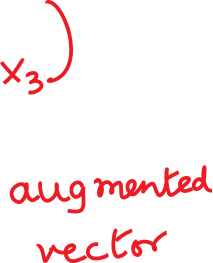 x₃)
augmented
vector